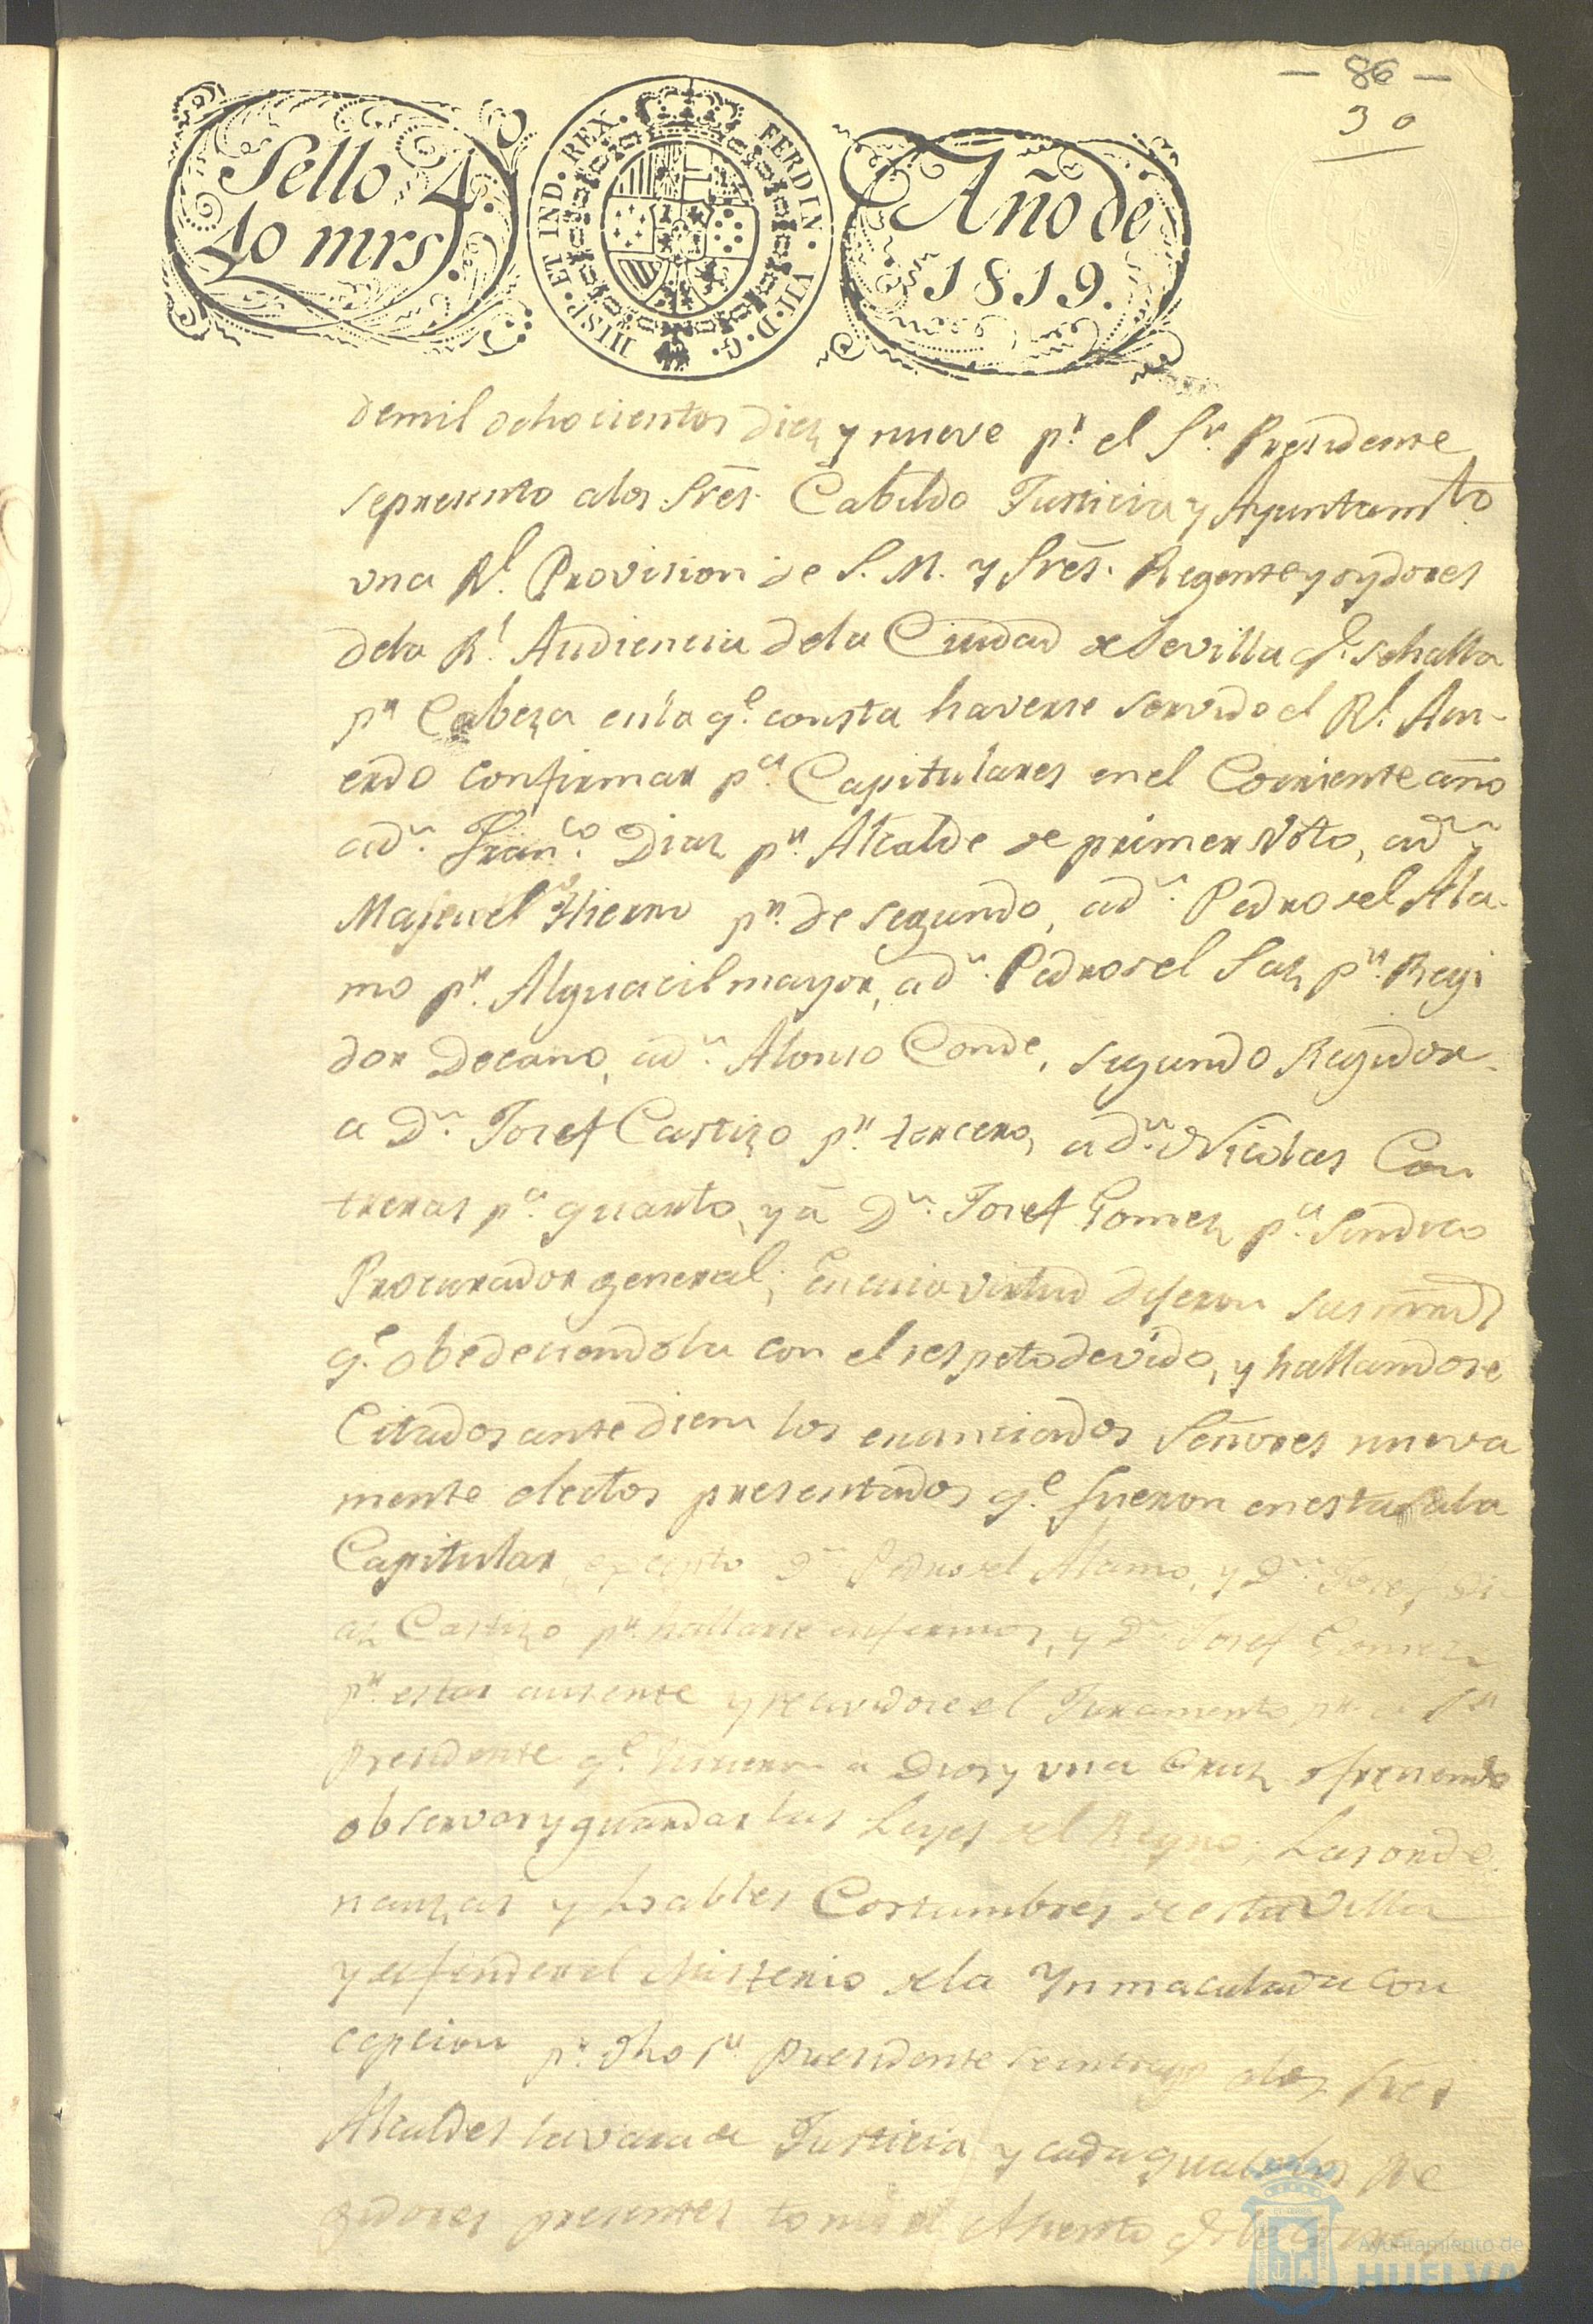 — 86 —
30
Sello 4.
40 mrs.
HISP. ET IND. REX. FERDIN. VII. D. G.
Año de
1819.
de mil ochocientos diez y nueve pr. el Sr. Presidente
se presento a los Sres. Cabildo Justicia y Ayuntamto.
una Rl. Provision de S. M. y Sres. Regente y oydores
de la Rl. Audiencia de la Ciudad de Sevilla qe. se halla
pr. Cabeza en la qe. consta haverse servido el Rl. Acu-
erdo confirmar pa. Capitulares en el Corriente año
a dn. Franco. Diaz pr. Alcalde de primer Voto, a dn.
Manuel Hierro pr. de segundo, a dn. Pedro del Ala-
mo pr. Alguacil mayor, a dn. Pedro del Saz pr. Regi
dor Decano, a dn. Alonso Conde, segundo Regidor
a Dn. Josef Castizo pr. tercero, a dn. Nicolas Con
treras pa. quarto, y a Dn. Josef Gomez pa. Sindico
Procurador general; en cuia virtud dijeron sus mrds
qe. obedeciendola con el respeto devido, y hallandose
Citados ante diem los enunciados Señores nueva
mente electos presentados qe. fueron en esta Sala
Capitular, excepto Dn. Pedro del Alamo, y Dn. Josef Di
az Castizo pr. hallarse enfermos, y Dn. Josef Gomez
pr. estar ausente y recividose el Juramento pr. el Sr.
Presidente qe. hicieron a Dios y una Cruz ofreciendo
observar y guardar las Leyes del Reyno, Las orde
nanzas y loables Costumbres de esta Villa
y defender el Misterio de la Ynmaculada Con
cepcion pr. dho Sr. Presidente se entrego a los Sres
Alcaldes la vara de Justicia y cada qual de los Re
gidores presentes tomó el Asiento qe. le
Ayuntamiento de
HUELVA